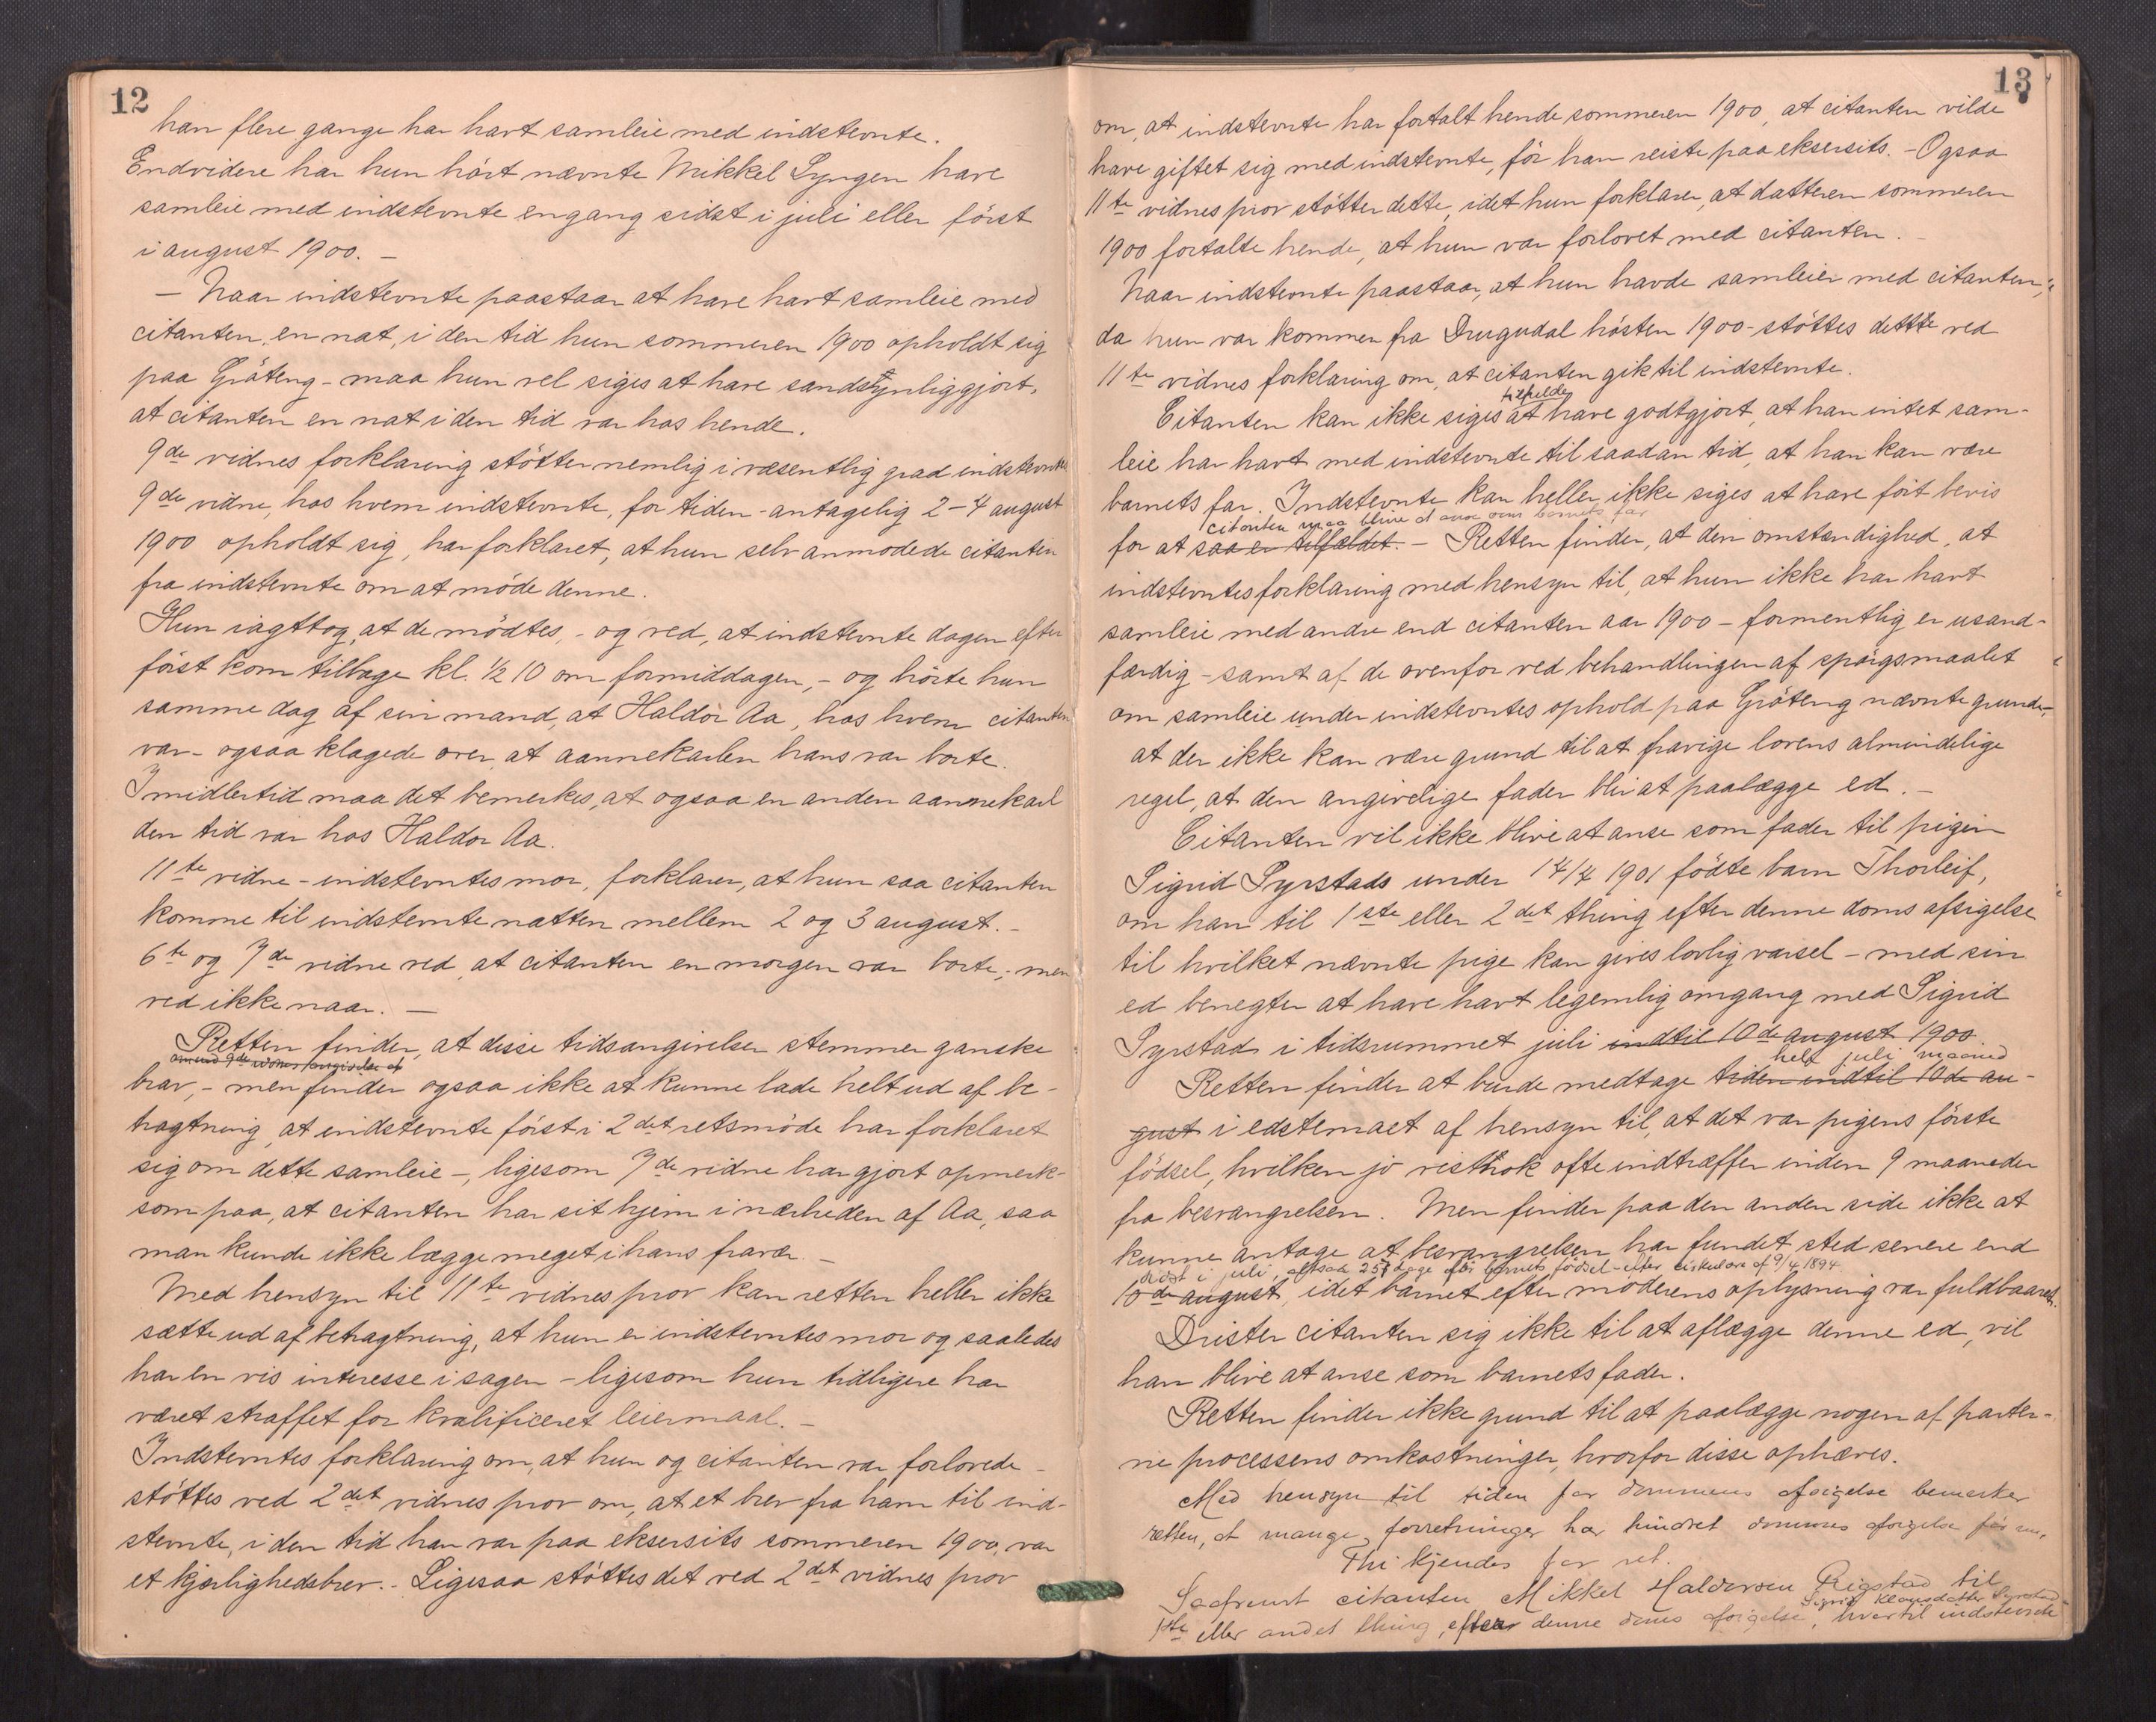 12
han flere gange har havt samleie med indstevnte.
Endvidere har hun hört nævnte Mikkel Lyngen have
samleie med indstevnte engang sidst i juli eller först
i august 1900. –
– Naar indstevnte paastaar at have havt samleie med
citanten, en nat, i den tid hun sommeren 1900 opholdt sig
paa Gräteng – maa hun vel siges at have sandsynliggjort,
at citanten en nat i den tid var hos hende.
9de vidnes forklaring stötter nemlig i væsentlig grad indstevnte
9de vidne, hos hvem indstevnte, for tiden – antagelig 2–4 august
1900 opholdt sig, har forklaret, at hun selv anmodede citanten
fra indstevnte om at möde denne.
Hun iagttog, at de mödtes, – og ved, at indstevnte dagen efter
först kom tilbage kl. ½ 10 om formiddagen, – og hörte hun
samme dag af sin mand, at Haldor Aa, hos hvem citanten
var – ogsaa klagede over, at aannekarlen hans var borte.
Imidlertid maa det bemerkes, at ogsaa en anden aannekarl
den tid var hos Haldor Aa.
11te vidne – indstevntes mor, forklarer, at hun saa citanten
komme til indstevnte natten mellem 2 og 3 august. –
6te og 7de vidne ved, at citanten en morgen var borte; men
ved ikke naar. –
Retten finder, at disse tidsangivelser stemmer ganske
omend 9de vidnes angivelse af
brav, – men finder ogsaa ikke at kunne lade helt ud af be-
tragtning, at indstevnte först i 2det retsmöde har forklaret
sig om dette samleie –, ligesom 7de vidne har gjort opmerk-
som paa, at citanten har sit hjem i nærheden af Aa, saa
man kunde ikke lægge meget i hans fravær. –
Med hensyn til 11te vidnes prov kan retten heller ikke
sætte ud af betragtning, at hun er indstevntes mor og saaledes
har en vis interesse i sagen – ligesom hun tidligere har
været straffet for kvalificeret leiermaal. –
Indstevntes forklaring om, at hun og citanten var forlovede –
stöttes ved 2det vidnes prov om, at et brev fra ham til ind-
stevnte, i den tid han var paa eksersits sommeren 1900, var
et kjærlighedsbrev. – Ligesaa stöttes det ved 2det vidnes prov
13
om, at indstevnte har fortalt hende sommeren 1900, at citanten vilde
have giftet sig med indstevnte, för han reiste paa eksersits. – Ogsaa
11te vidnes prov stötter dette, idet hun forklarer, at datteren sommeren
1900 fortalte hende, at hun var forlovet med citanten. –
Naar indstevnte paastaar, at hun havde samleie med citanten,
da hun var kommen fra Drugudal hösten 1900 – stöttes dette ved
11te vidnes forklaring om, at citanten gik til indstevnte.
tilfulde
Citanten kan ikke siges at have godtgjort, at han intet sam-
leie har havt med indstevnte til saadan tid, at han kan være
barnets far. Indstevnte kan heller ikke siges at have fört bevis
citanten maa blive at anse som barnets far
for at saa er tilfældet. – Retten finder, at den omstændighed, at
indstevntes forklaring med hensyn til, at hun ikke har havt
samleie med andre end citanten aar 1900 – formentlig er usand-
færdig – samt af de ovenfor ved behandlingen af spörgsmaalet
om samleie under indstevntes ophold paa Gräteng nævnte grunde,
at der ikke kan være grund til at fravige lovens almindelige
regel, at den angivelige fader blir at paalægge ed. –
Citanten vil ikke blive at anse som fader til pigen
Sigrid Syrstads under 14/4 1901 födte barn Thorleif,
om han til 1ste eller 2det thing efter denne doms afsigelse
til hvilket nævnte pige kan gives lovlig varsel – med sin
ed benegter at have havt legemlig omgang med Sigrid
Syrstad i tidsrummet juli indtil 10de august 1900.
helt juli maaned
Retten finder at burde medtage tiden indtil 10de au-
gust i edstemaet af hensyn til, at det var pigens förste
födsel, hvilken jo vistnok ofte indtræffer inden 9 maaneder
fra besvangrelsen. Men finder paa den anden side ikke at
kunne antage at besvangrelsen har fundet sted senere end
sidst i juli, altsaa 257 dage för barnets födsel – efter cirkulære af 9/4 1894
10de august, idet barnet efter moderens oplysning var fuldbaaret.
Drister citanten sig ikke til at aflægge denne ed, vil
han blive at anse som barnets fader.
Retten finder ikke grund til at paalægge nogen af parter-
ne processens omkostninger, hvorfor disse ophæves.
Med hensyn til tiden for dommens afsigelse bemerker
retten, at mange forretninger har hindret dommens afsigelse för nu.
Thi kjendes for ret.
Saafremt citanten Mikkel Haldorsen Rigstad til
Sigrid Klausdatter Syrstad
1ste eller andet thing, efter denne doms afsigelse, hvortil indstevnte